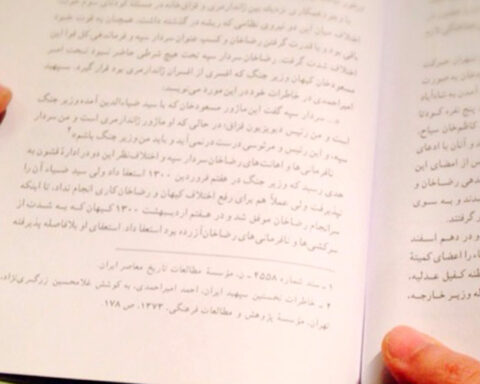 اختلاف میان این دو نیروی نظامی که ریشه در گذشته داشت، همچنان به قوت خود
باقی بود و با قدرت گرفتن رضاخان و کسب عنوان سردار سپه و فرماندهی کل قوا این
اختلاف شدت گرفت. رضاخان سردار سپه تحت هیچ شرطی حاضر نبود تحت امر
مسعودخان کیهان وزیر جنگ که افسری از افسران ژاندارمری بود قرار گیرد. سپهبد
امیراحمدی در خاطرات خود در این مورد می‌نویسد:
«... سردار سپه گفت این ماژور مسعودخان که با سید ضیاءالدین آمده وزیر جنگ
است و من رئیس دیویزیون قزاق؛ در حالی که او ماژور ژاندارمری است و من سردار
سپه، و این رئیس و مرئوسی درست درنمی‌آید و باید من وزیر جنگ باشم.»۲
نافرمانی‌ها و اهانت‌های رضاخان سردار سپه و اختلاف‌نظر این دو در ادارهٔ قشون به
حدی رسید که وزیر جنگ در هفتم فروردین ۱۳۰۰ استعفا داد ولی سید ضیاء آن را
نپذیرفت ولی عملاً هم برای رفع اختلاف کیهان و رضاخان کاری انجام نداد، تا اینکه
سرانجام رضاخان موفق شد و در هفتم اردیبهشت ۱۳۰۰ کیهان که به شدت از
سرکشی‌ها و نافرمانی‌های رضاخان آزرده بود استعفا داد. استعفای او بلافاصله پذیرفته
۱ ـ سند شماره ۲۵۵۸ ـ ن، مؤسسهٔ مطالعات تاریخ معاصر ایران.
۲ ـ خاطرات نخستین سپهبد ایران، احمد امیراحمدی، به کوشش غلامحسین زرگری‌نژاد،
تهران، مؤسسهٔ پژوهش و مطالعات فرهنگی، ۱۳۷۳، ص ۱۷۸.
پنج نفره کودتا
کاظم‌خان سیاح،
و آنان با ادعای
پس از امضای این
رضاخان و
و به سوی
گرفتند.
و در دهم اسفند
را اعضای کمیتهٔ
کفیل عدلیه،
وزیر خارجه،